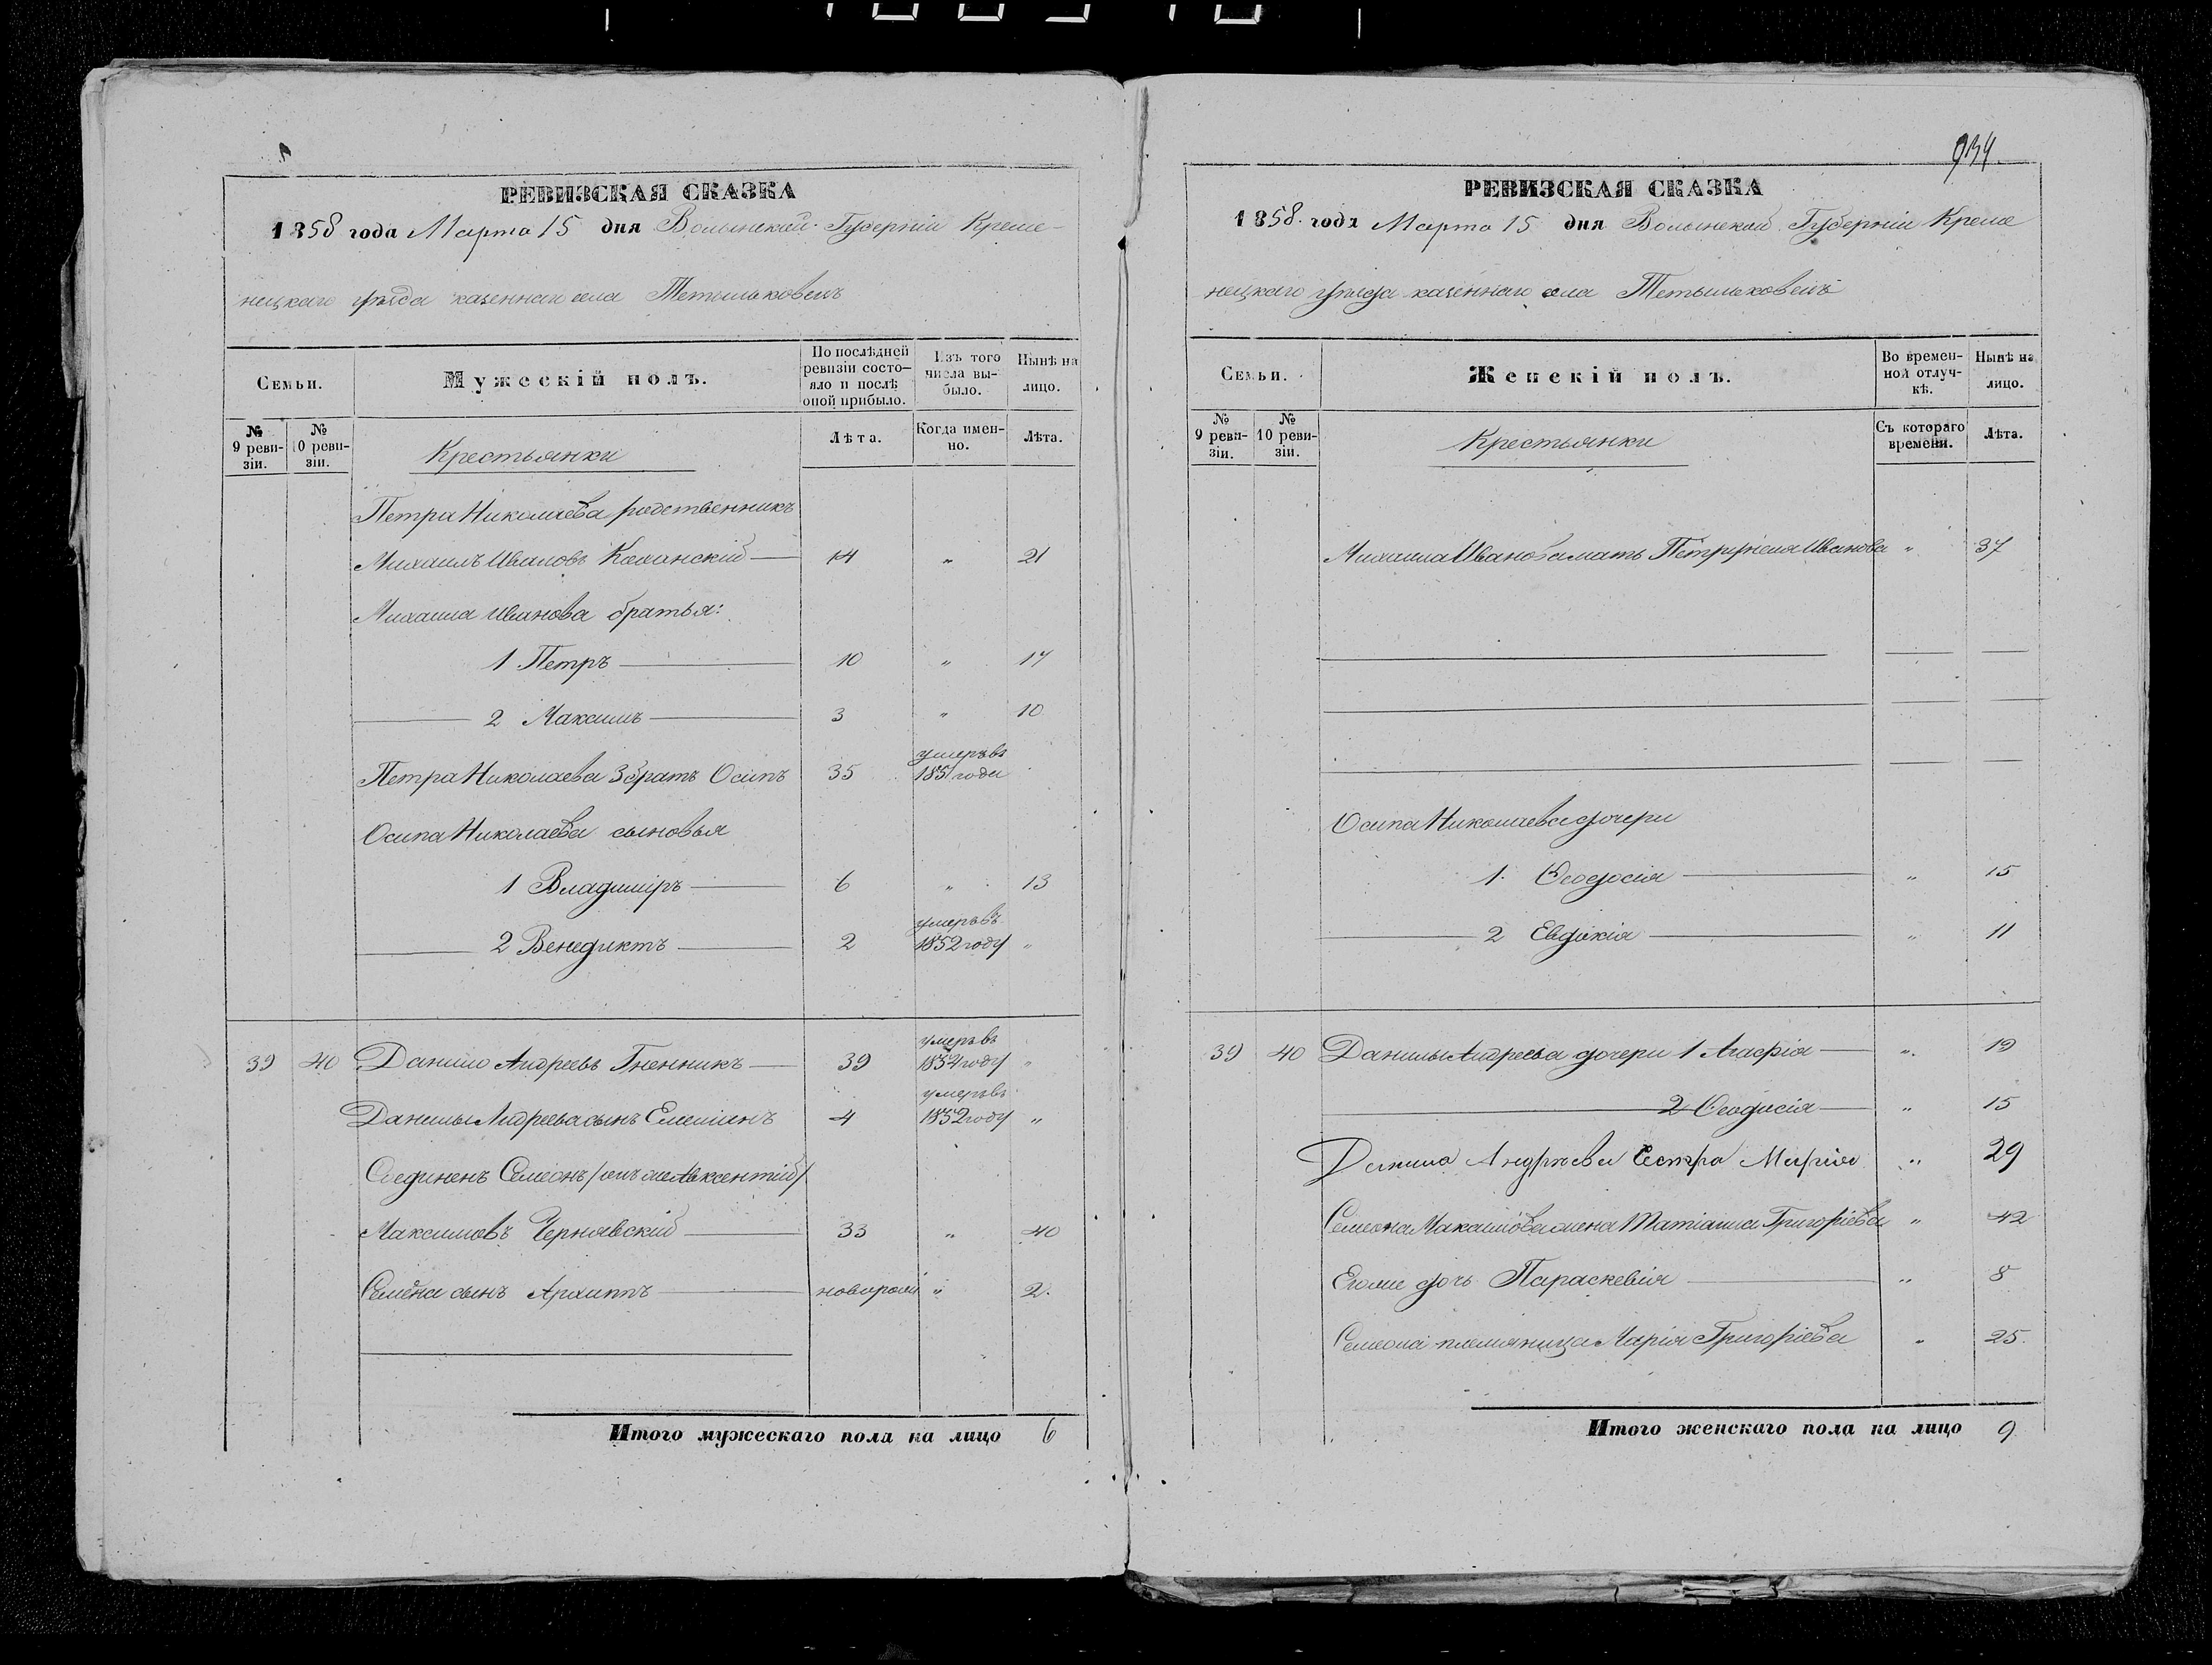 РЕВИЗСКАЯ СКАЗКА
1858 года Марта 15 дня Волынской Губерніи Креме-
нецкаго уѣзда казеннаго села Тетыльковецъ
Семьи. Мужескій полъ. По послѣдней ревизіи состо- Изъ того Нынѣ на
яло и послѣ оной прибыло. числа вы- было. лицо.
№ 9 реви- зіи. № 10 реви- зіи. Крестьянки Лѣта. Когда имен- но. Лѣта.
Петра Николаева родственникъ
Михаилъ Ивановъ Коханскій 14 " 21
Михаила Иванова братья:
1 Петръ 10 " 17
2 Максимъ 3 " 10
Петра Николаева 3 братъ Осипъ 35 умеръ въ 1851 году
Осипа Николаева сыновья
1 Владиміръ 6 " 13
2 Венедиктъ 2 умеръ въ 1852 году "
39 40 Данило Андреевъ Гненникъ 39 умеръ въ 1852 году "
Данилы Андреева сынъ Емеліанъ 4 умеръ въ 1852 году "
Соединенъ Семеонъ /онъ же Авксентій/
Максимовъ Чернявскій 33 " 40
Семена сынъ Архиппъ новорож " 2.
Итого мужескаго пола на лицо 6
934.
РЕВИЗСКАЯ СКАЗКА
1858. года Марта 15 дня Волынской Губерніи Креме
нецкаго уѣзда казеннаго села Тетыльковецъ
Семьи. Женскій полъ. Во времен- ной отлуч- кѣ. Нынѣ на лицо.
№ 9 реви- зіи. № 10 реви- зіи. Крестьянки Съ котораго времени. Лѣта.
Михаила Иванова мать Петрунеля Иванова " 37
Осипа Николаева дочери
1. Феодосія " 15
2 Евдокія " 11
39 40 Данилы Андреева дочери 1 Агафія " 19
2 Феодосія " 15
Данила Андреева Сестра Марія " 29
Семеона Максимова жена Татіана Григоріева " 42
Егоже дочь Параскевія " 8
Семеона племяница Марія Григоріева " 25.
Итого женскаго пола на лицо 9